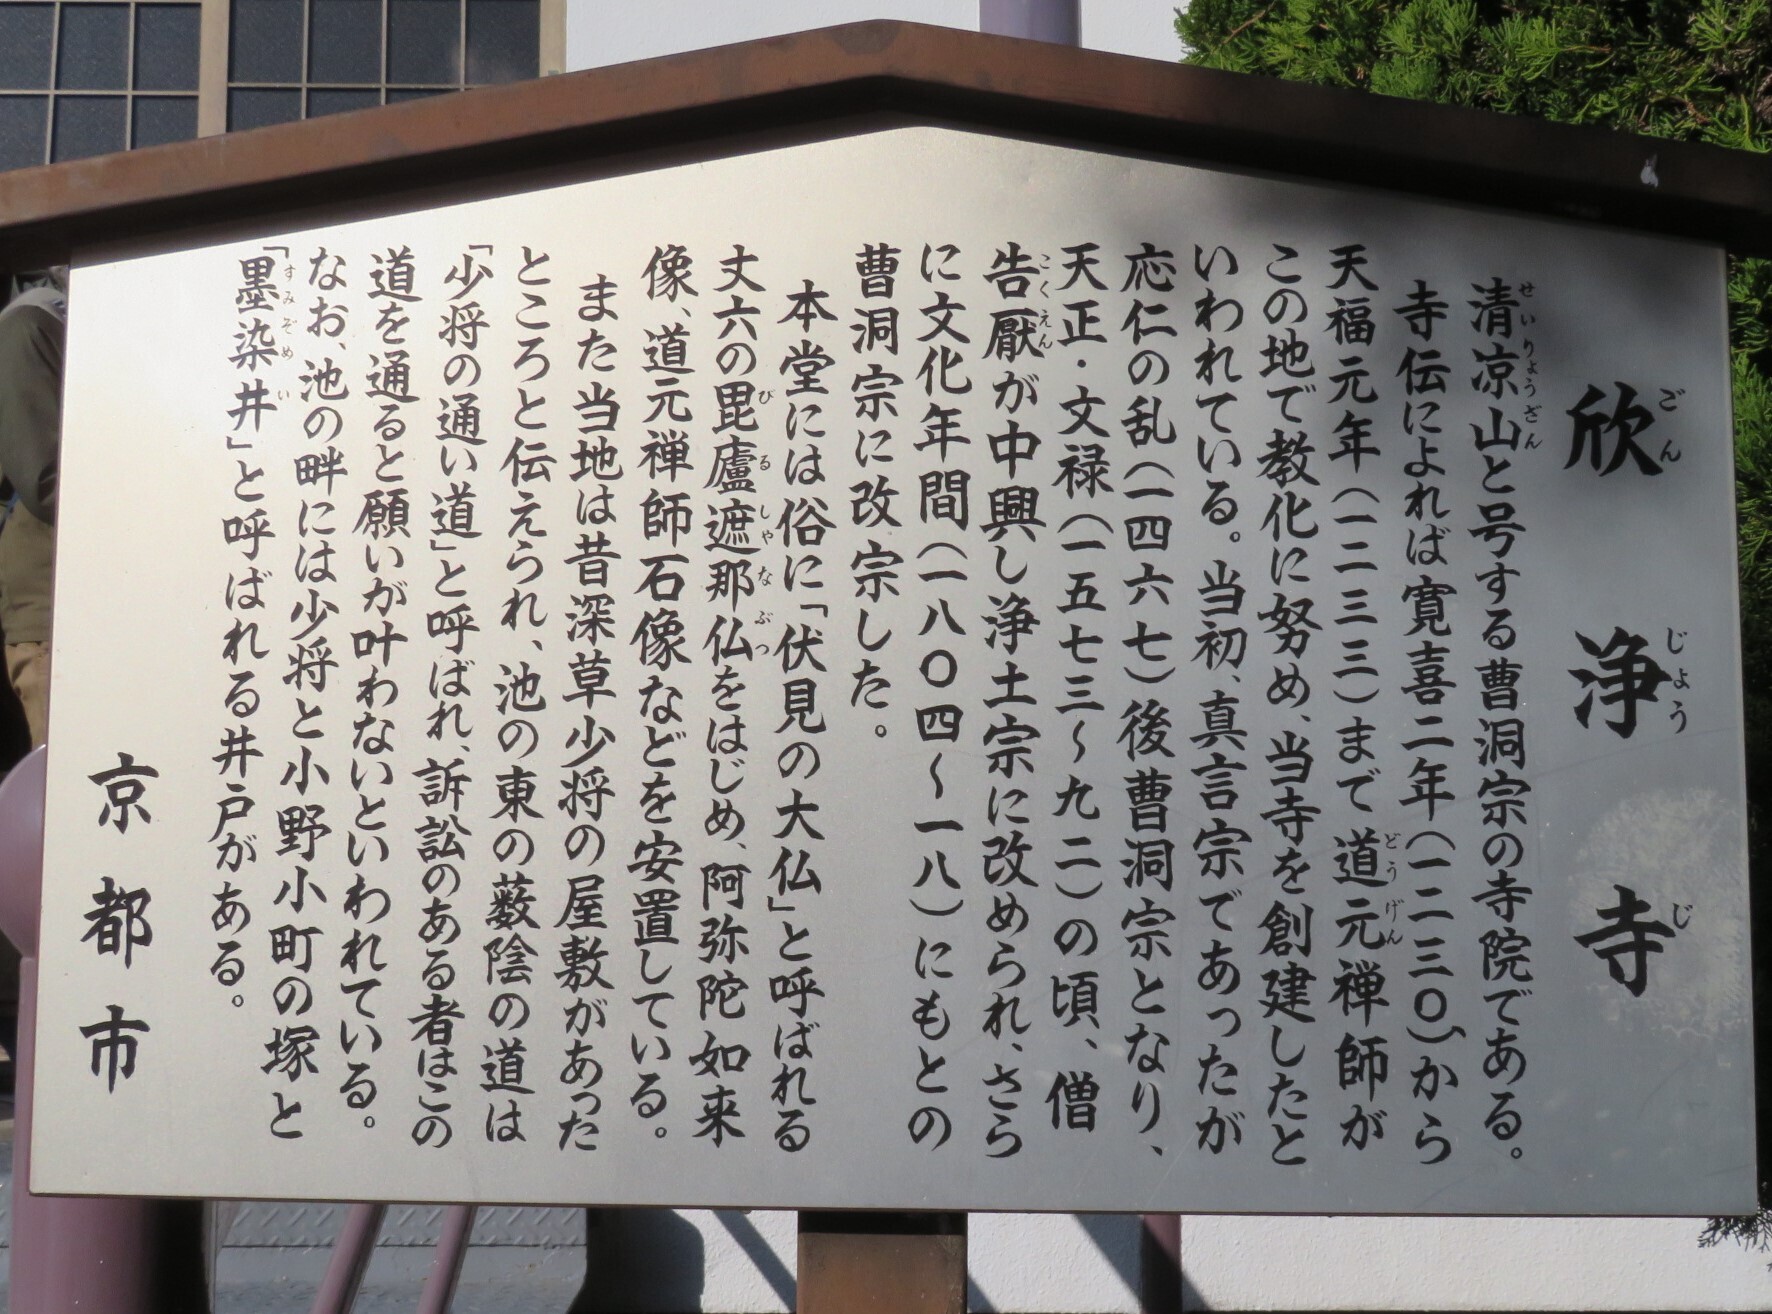 欣浄寺
清凉山と号する曹洞宗の寺院である。
寺伝によれば寛喜二年(一二三〇)から
天福元年(一二三三)まで道元禅師が
この地で教化に努め、当寺を創建したと
いわれている。当初、真言宗であったが
応仁の乱(一四六七)後曹洞宗となり、
天正・文禄(一五七三〜九二)の頃、僧
告厭が中興し浄土宗に改められ、さら
に文化年間(一八〇四〜一八)にもとの
曹洞宗に改宗した。
本堂には俗に「伏見の大仏」と呼ばれる
丈六の毘廬遮那仏をはじめ、阿弥陀如来
像、道元禅師石像などを安置している。
また当地は昔深草少将の屋敷があった
ところと伝えられ、池の東の薮陰の道は
「少将の通い道」と呼ばれ、訴訟のある者はこの
道を通ると願いが叶わないといわれている。
なお、池の畔には少将と小野小町の塚と
「墨染井」と呼ばれる井戸がある。
京都市